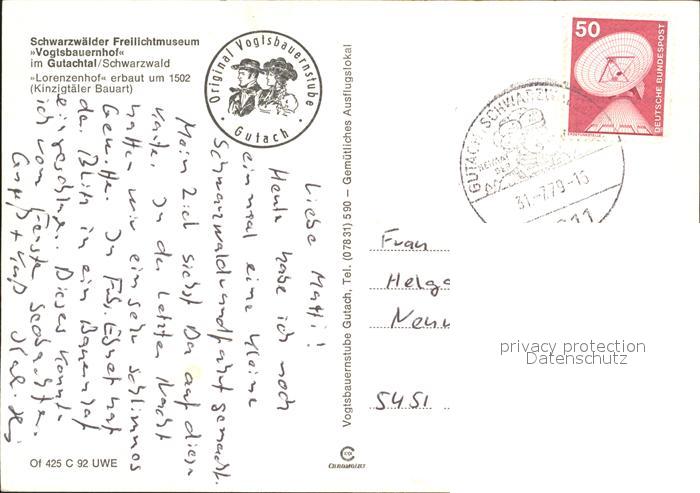 Schwarzwälder Freilichtmuseum
»Vogtsbauernhof«
im Gutachtal/Schwarzwald
»Lorenzenhof« erbaut um 1502
(Kinzigtäler Bauart)
Original Vogtsbauernstube
· Gutach ·
Liebe Mutti!
Heute habe ich noch
einmal eine kleine
Schwarzwaldrundfahrt gemacht.
Mein Ziel siehst Du auf dieser
Karte. In der letzten Nacht
hatten wir ein sehr schlimmes
Gewitter. In Fu. hat
der Blitz in ein Bauernhof
eingeschlagen. Dieses konnte
ich vom Fenster beobachten.
Gruß + Kuß
Of 425 C 92 UWE
Vogtsbauernstube Gutach, Tel. (07831) 590 – Gemütliches Ausflugslokal
CHROMOLUX
50
DEUTSCHE BUNDESPOST
GUTACH (SCHWARZW
31.-7.79-15
Frau
Helga
Neu
5451
privacy protection
Datenschutz